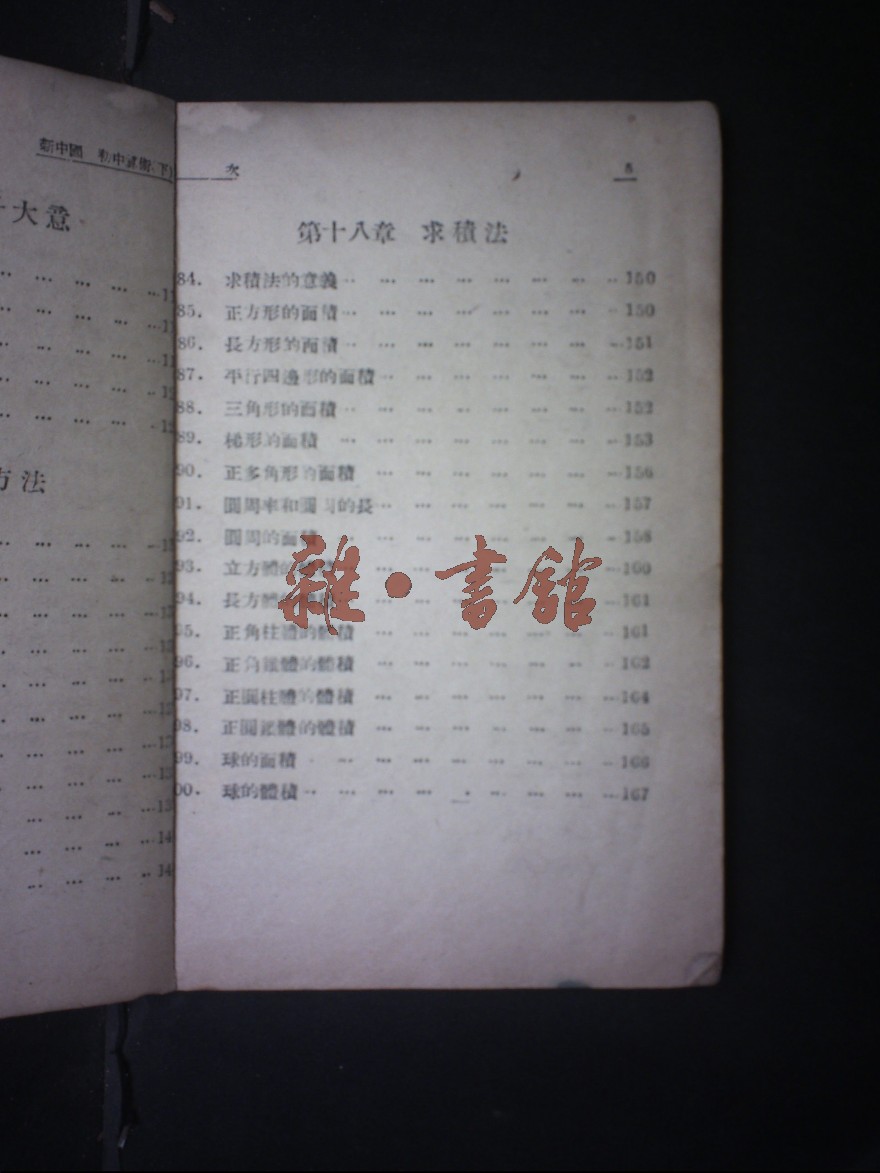 新中國 初中算術(下)
大意
方法
次 5
第十八章 求積法
84. 求積法的意義 150
85. 正方形的面積 150
86. 長方形的面積 151
87. 平行四邊形的面積 152
88. 三角形的面積 152
89. 梯形的面積 153
90. 正多角形的面積 156
91. 圓周率和圓周的長 157
92. 圓周的面積 158
93. 立方體的體積 160
94. 長方體的體積 161
95. 正角柱體的體積 161
96. 正角錐體的體積 162
97. 正圓柱體的體積 164
98. 正圓錐體的體積 165
99. 球的面積 166
00. 球的體積 167
雜·書館